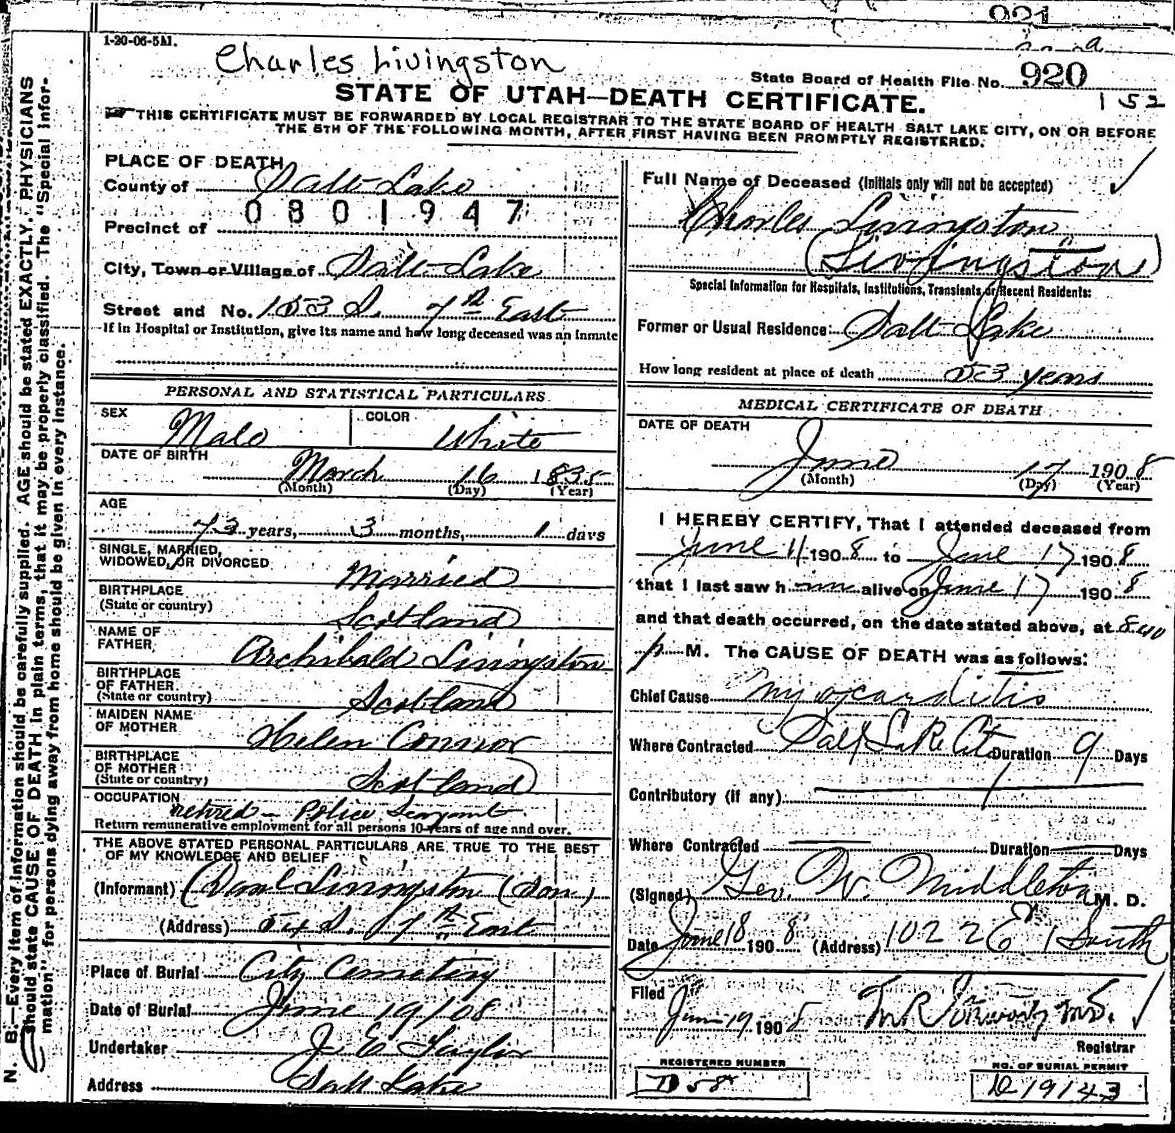 921
1-20-06-5M.
Charles Livingston
State Board of Health File No. 920
152
STATE OF UTAH—DEATH CERTIFICATE.
THIS CERTIFICATE MUST BE FORWARDED BY LOCAL REGISTRAR TO THE STATE BOARD OF HEALTH SALT LAKE CITY, ON OR BEFORE
THE 5TH OF THE FOLLOWING MONTH, AFTER FIRST HAVING BEEN PROMPTLY REGISTERED.
N. B.—Every item of information should be carefully supplied. AGE should be stated EXACTLY. PHYSICIANS
should state CAUSE OF DEATH in plain terms, that it may be properly classified. The "Special Infor-
mation" for persons dying away from home should be given in every instance.
PLACE OF DEATH
County of Salt Lake
0801947
Precinct of
City, Town or Village of Salt Lake
Street and No. 153 S. 7th East
If in Hospital or Institution, give its name and how long deceased was an Inmate
PERSONAL AND STATISTICAL PARTICULARS.
SEX Male COLOR White
DATE OF BIRTH March 16 1835
(Month) (Day) (Year)
AGE
73 years, 3 months, 1 days
SINGLE, MARRIED,
WIDOWED, OR DIVORCED Married
BIRTHPLACE
(State or country) Scotland
NAME OF
FATHER, Archibald Livingston
BIRTHPLACE
OF FATHER.
(State or country) Scotland
MAIDEN NAME
OF MOTHER Helen Connor
BIRTHPLACE
OF MOTHER
(State or country) Scotland
OCCUPATION retired - Police Seargant
Return remunerative employment for all persons 10 years of age and over.
THE ABOVE STATED PERSONAL PARTICULARS ARE TRUE TO THE BEST
OF MY KNOWLEDGE AND BELIEF
(Informant) Livingston (Son)
(Address) 54 S. 7th East
Place of Burial City Cemetery
Date of Burial June 19/08
Undertaker J E Taylor
Address Salt Lake
Full Name of Deceased (Initials only will not be accepted)
Charles Livingston
(Livingston)
Special Information for Hospitals, Institutions, Transients or Recent Residents:
Former or Usual Residence: Salt Lake
How long resident at place of death 53 years
MEDICAL CERTIFICATE OF DEATH
DATE OF DEATH
June 17 1908
(Month) (Day) (Year)
I HEREBY CERTIFY, That I attended deceased from
June 11 1908 to June 17 1908
that I last saw him alive on June 17 1908
and that death occurred, on the date stated above, at 8.40
p M. The CAUSE OF DEATH was as follows:
Chief Cause Myocarditis
Where Contracted Salt Lake Ct Duration 9 Days
Contributory (if any)
Where Contracted Duration Days
(Signed) Geo. W. Middleton M. D.
Date June 18 1908 (Address) 1022 E 1 South
Filed June 19 1908
Registrar
REGISTERED NUMBER
D 58
NO. OF BURIAL PERMIT
D 19143